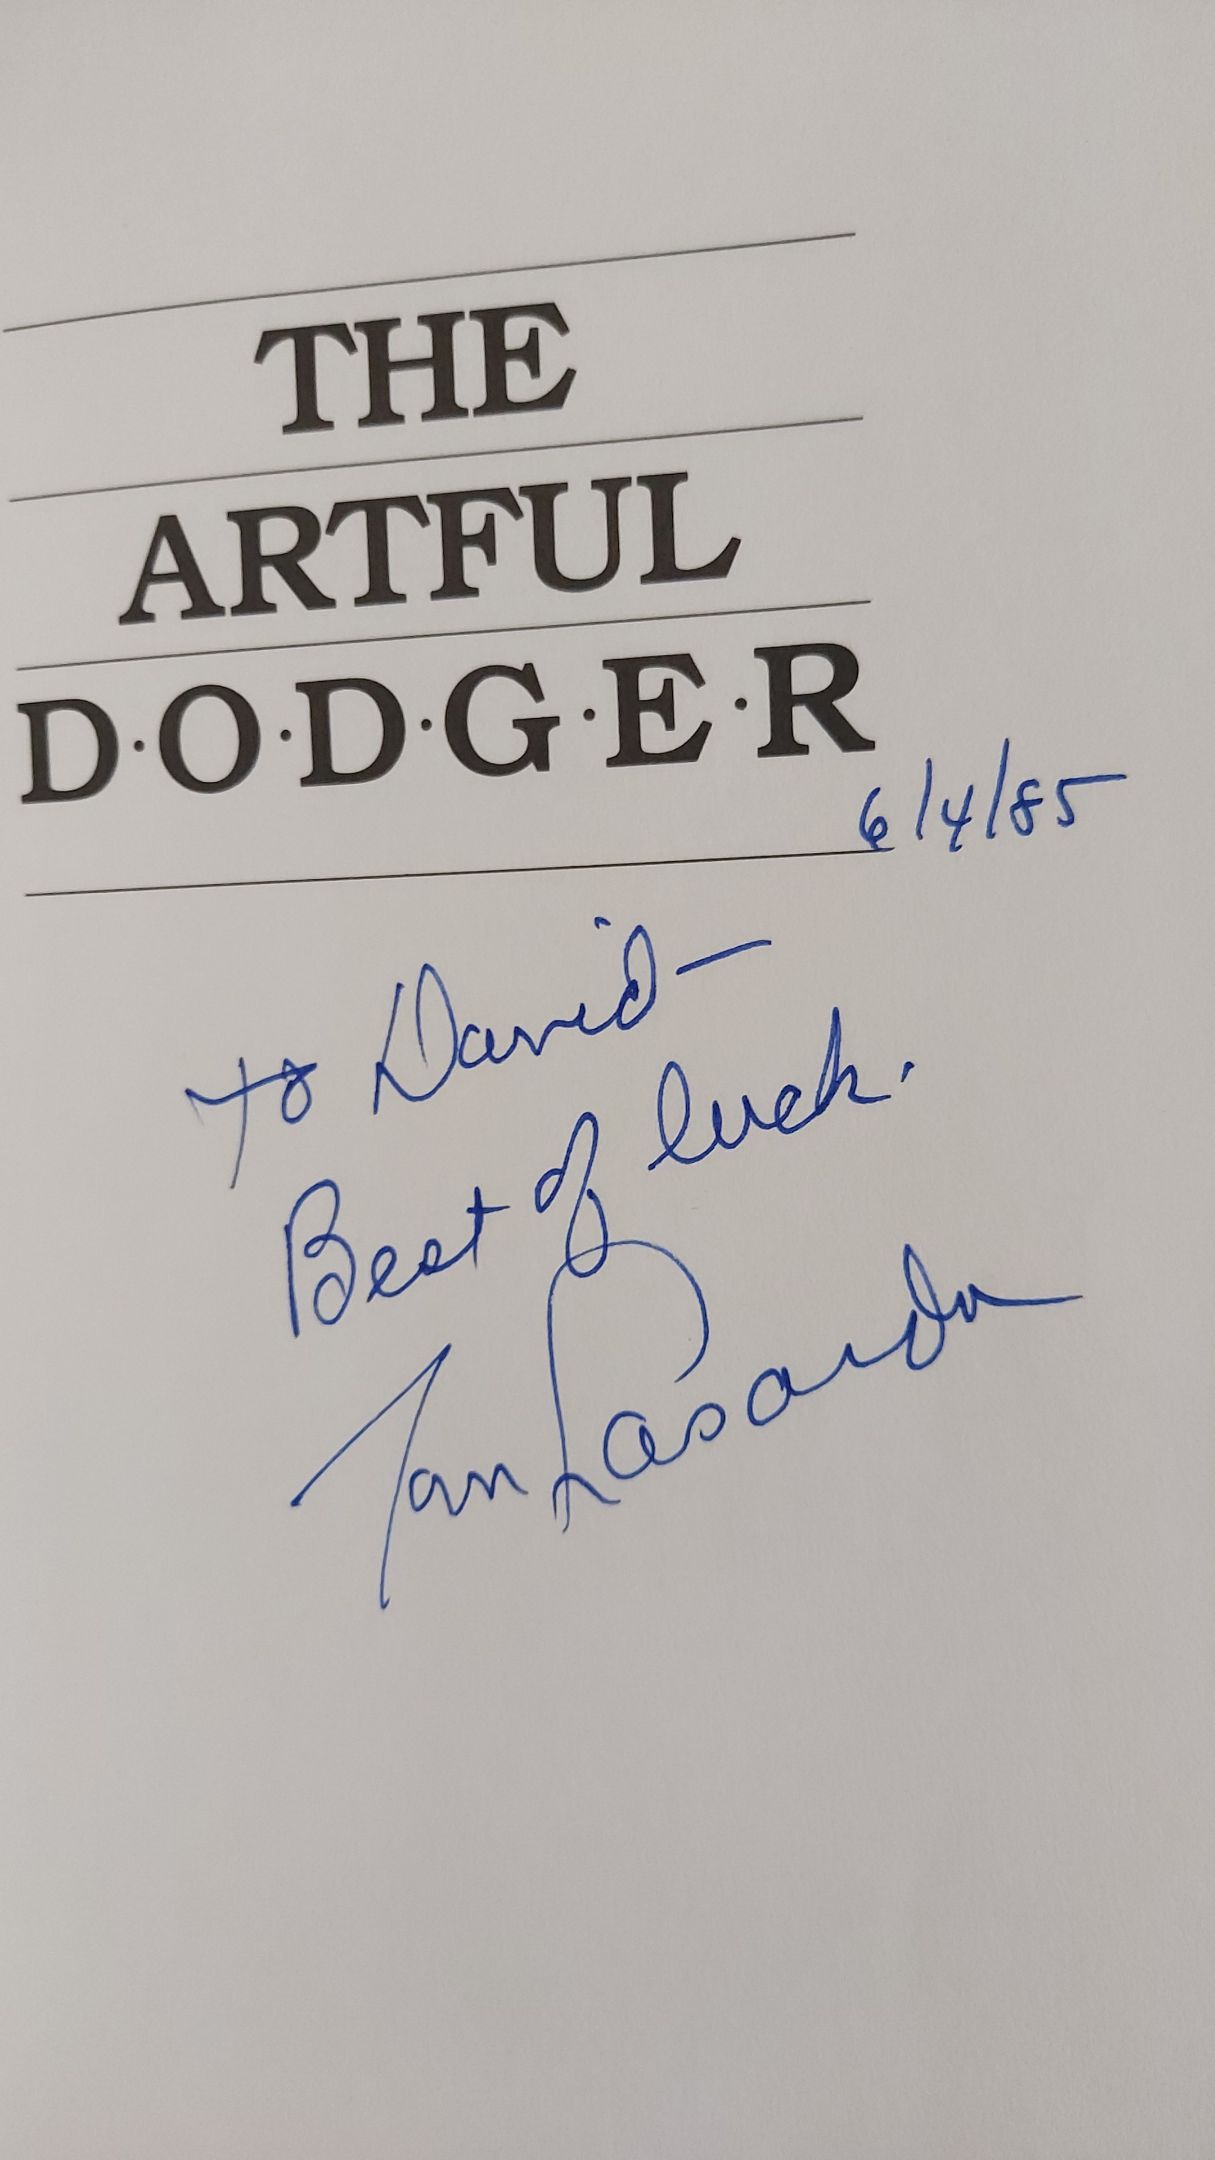 THE
ARTFUL
D·O·D·G·E·R
6/4/85
To David-
Best of luck.
Tom Lasorda